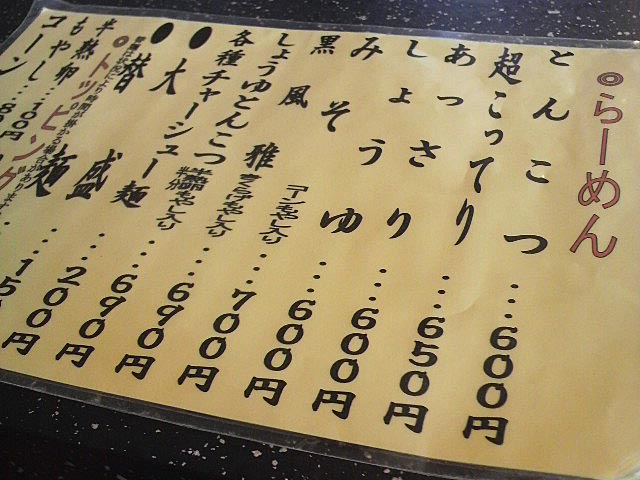 ◎らーめん
とんこつ…600円
超こってり…650円
あっさり…600円
しょうゆ…600円
みそ コーンもやし入り…700円
黒風雅 きくらげもやし入り…690円
しょうゆとんこつ 半熟卵もやし入り…690円
各種チャーシュー麺
●大盛…200円
●替麺…150円
◎トッピング
半熟卵…100円
もやし…
コーン…80円